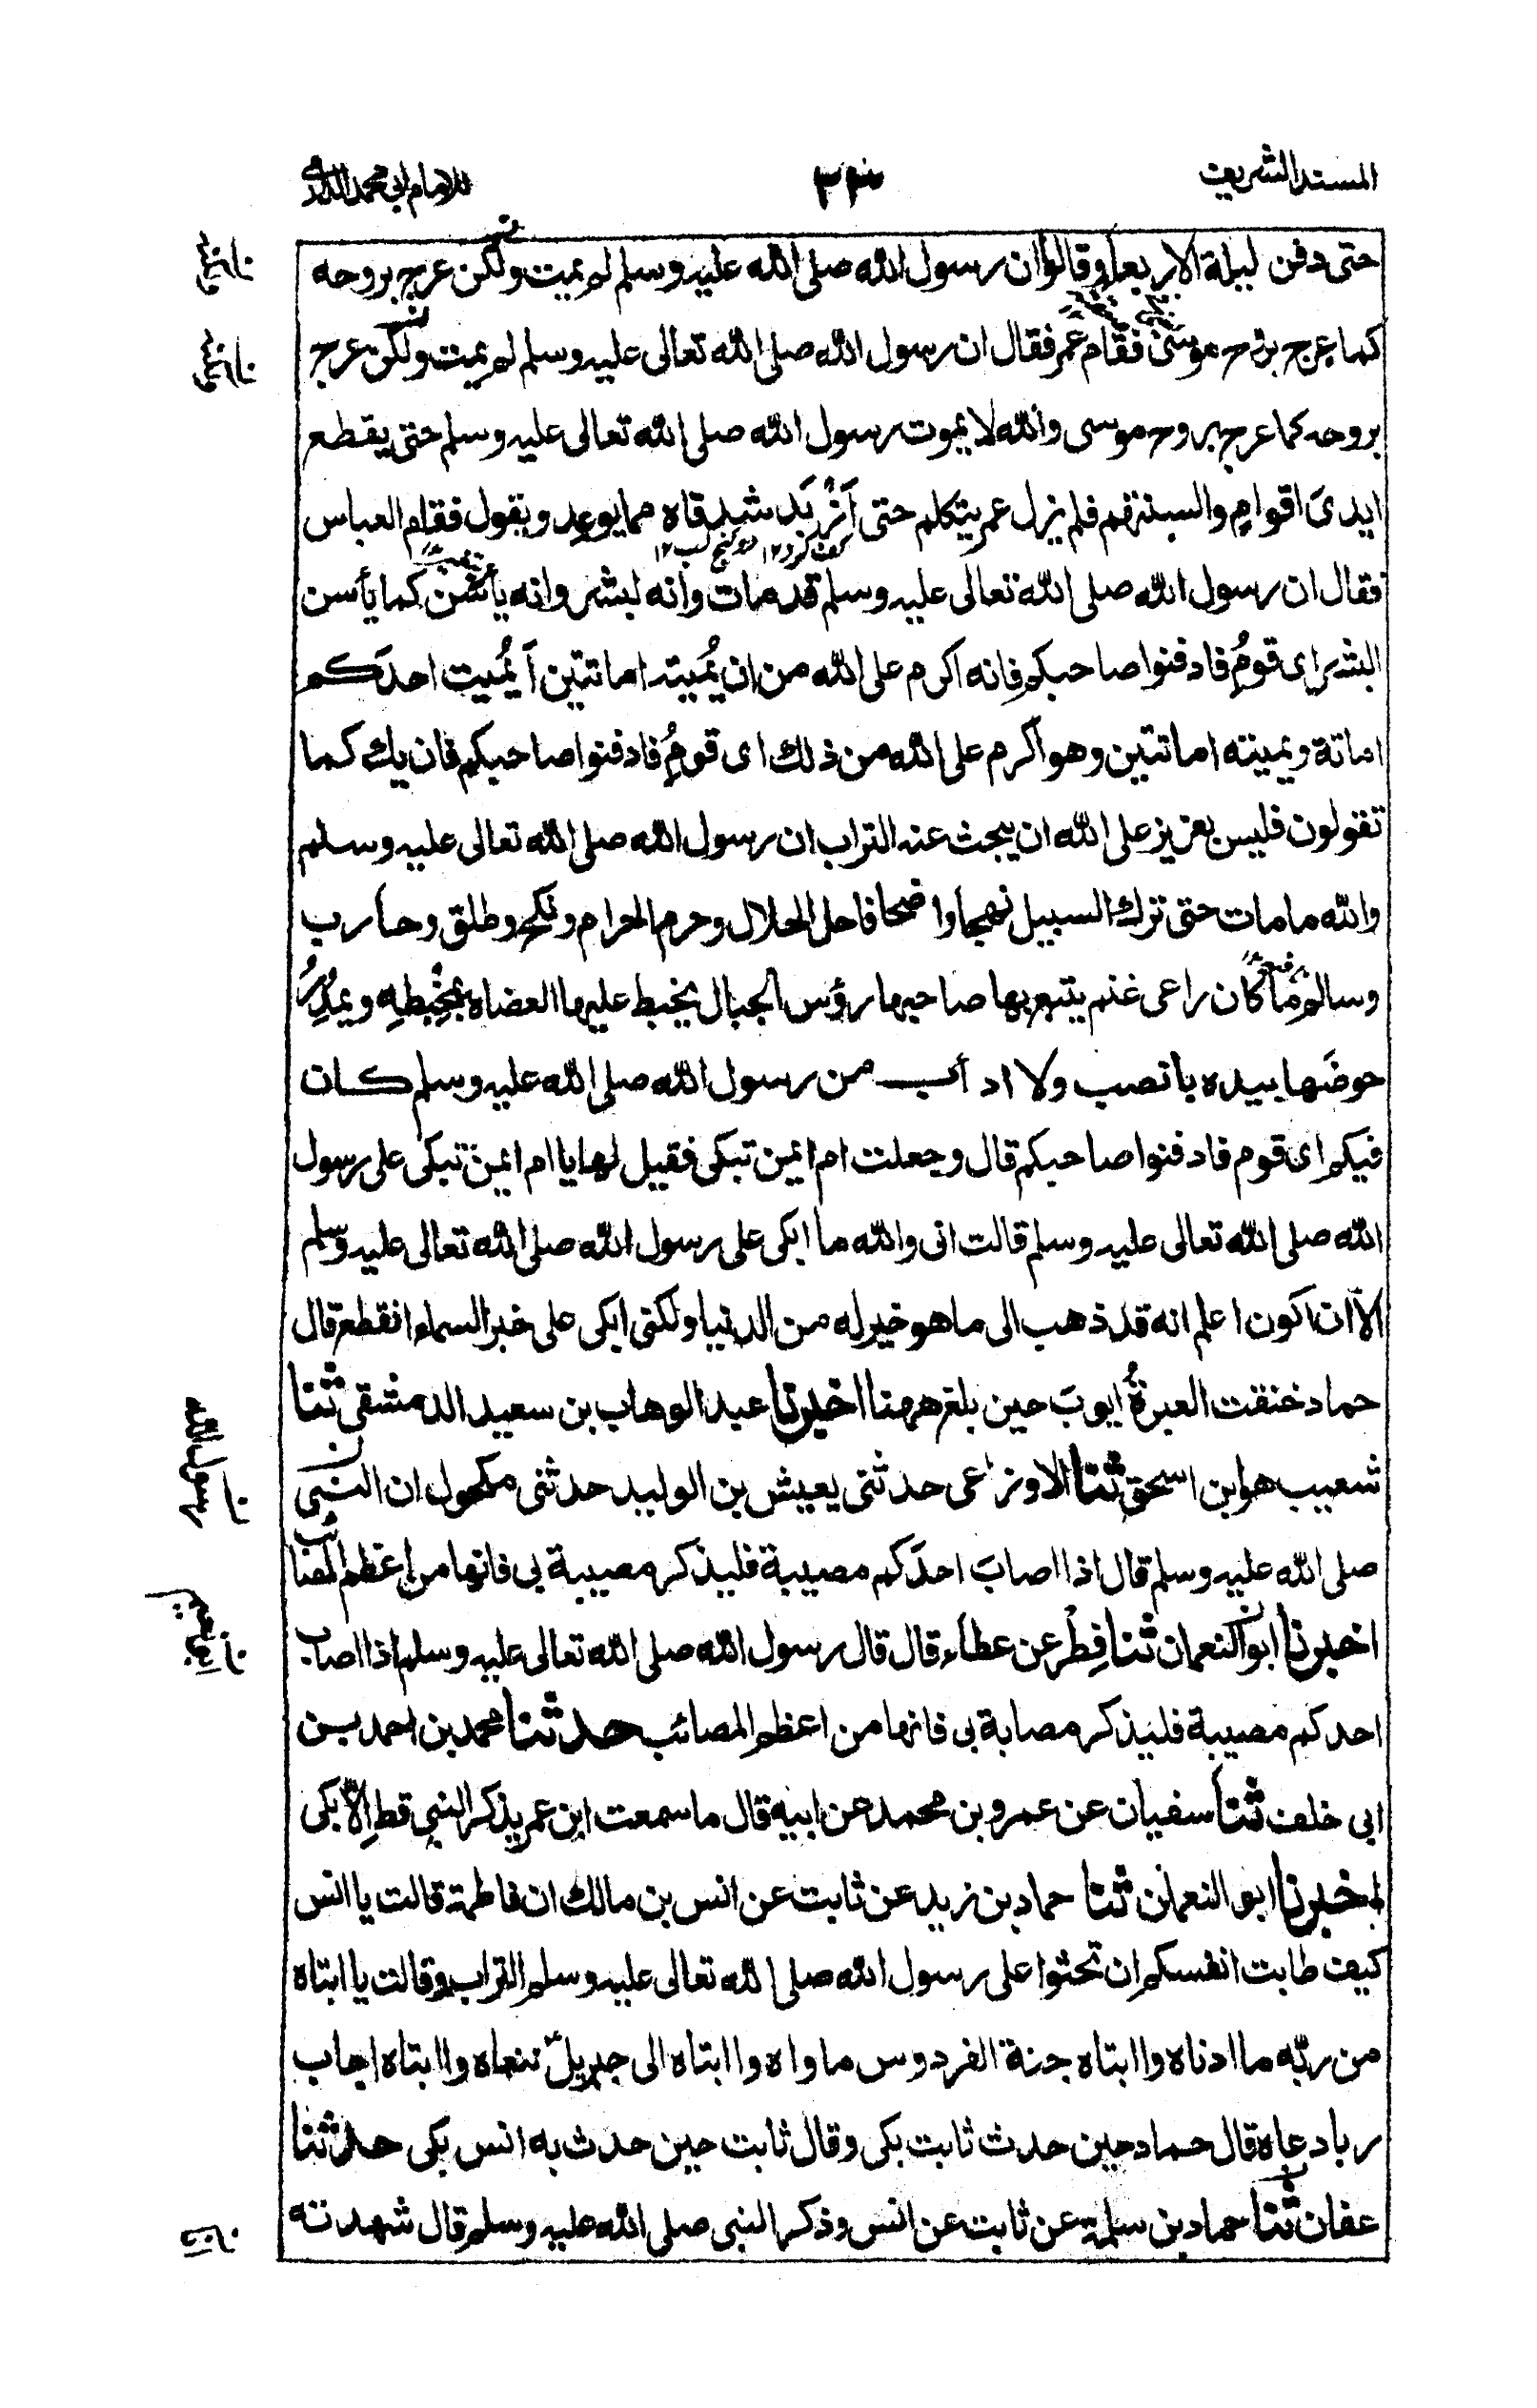 المسند الشريف
٢٣
للامام ابی محمد الدارمی
حتى دفن ليلة الاربعاء وقالوا ان رسول الله صلى الله عليه وسلم لم يمت ولكن عرج بروحه
كما عرج بروح موسى فقام عمر فقال ان رسول الله صلى الله تعالى عليه وسلم لم يمت ولكن عرج
بروحه كما عرج بروح موسى والله لا يموت رسول الله صلى الله تعالى عليه وسلم حتى يقطع
ايدىَ اقوامٍ والسنتهم فلم يزل عمر يتكلم حتى اَزْبَد شدقاه مما يوعد ويقول فقام العباس
كف كرد ١٢ دو كنج لب ١٢
فقال ان رسول الله صلى الله تعالى عليه وسلم قد مات وانه لبشر وانه يأسن كما يأسن
البشر اى قومُ فادفنوا صاحبكم فانه اكرم على الله من ان يُميته اماتتين اَيُميت احدَكم
اماتة ويميته اماتتين وهو اكرم على الله من ذلك اى قومُ فادفنوا صاحبكم فان يك كما
تقولون فليس بعزيز على الله ان يبحث عنه التراب ان رسول الله صلى الله تعالى عليه وسلم
والله ما مات حتى ترك السبيل نهجا واضحا فاحل الحلال وحرم الحرام ونكح وطلق وحارب
وسالم ما كان راعى غنم يتبع بها صاحبها رؤس الجبال يخبط عليها العضاه بمِخْبطِهِ ويمدُرُ
حوضَها بيده بانصب ولا ادأب من رسول الله صلى الله عليه وسلم كان
فيكم اى قوم فادفنوا صاحبكم قال وجعلت ام ايمن تبكى فقيل لها يا ام ايمن تبكى على رسول
الله صلى الله تعالى عليه وسلم قالت انى والله ما ابكى على رسول الله صلى الله تعالى عليه وسلم
الّا ان اكون اعلم انه قد ذهب الى ما هو خير له من الدنيا ولكنى ابكى على خبر السماء انقطع قال
حماد خنقت العبرةُ ايوبَ حين بلغ ههنا اخبرنا عبد الوهاب بن سعيد الدمشقى ثنا
شعيب هو ابن اسحق ثنا الاوزاعى حدثنى يعيش بن الوليد حدثنى مكحول ان النبى
ن رسول الله
صلى الله عليه وسلم قال اذا اصابَ احدَكم مصيبة فليذكر مصيبة بى فانها من اعظم المصائب
اخبرنا ابو النعمان ثنا فِطْر عن عطاء قال قال رسول الله صلى الله تعالى عليه وسلم اذا اصاب
ن ابو نعيم
احدكم مصيبة فليذكر مصابة بى فانها من اعظم المصائب حدثنا محمد بن احمد بن
ابى خلف ثنا سفيان عن عمرو بن محمد عن ابيه قال ما سمعت ابن عمر يذكر النبى قط اِلّا بكى
اخبرنا ابو النعمان ثنا حماد بن زيد عن ثابت عن انس بن مالك ان فاطمة قالت يا انس
كيف طابت انفسكم ان تحثوا على رسول الله صلى الله تعالى عليه وسلم التراب وقالت يا ابتاه
من ربّه ما ادناه وا ابتاه جنة الفردوس ماواه وا ابتاه الى جبريل ننعاه وا ابتاه اجاب
ربا دعاه قال حماد حين حدث ثابت بكى وقال ثابت حين حدث به انس بكى حدثنا
عفان ثنا حماد بن سلمة عن ثابت عن انس وذكر النبى صلى الله عليه وسلم قال شهدته